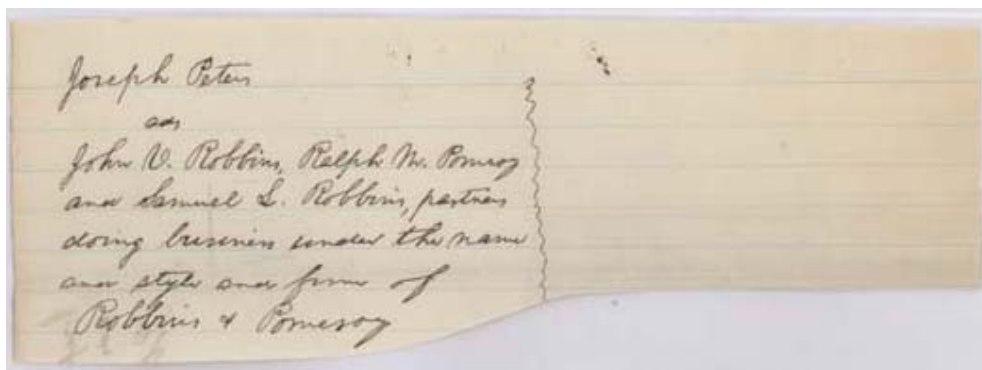 Joseph Peters
ads
John V. Robbins, Ralph M. Pomeroy
and Samuel L. Robbins, partners
doing business under the name
and style and firm of
Robbins & Pomeroy